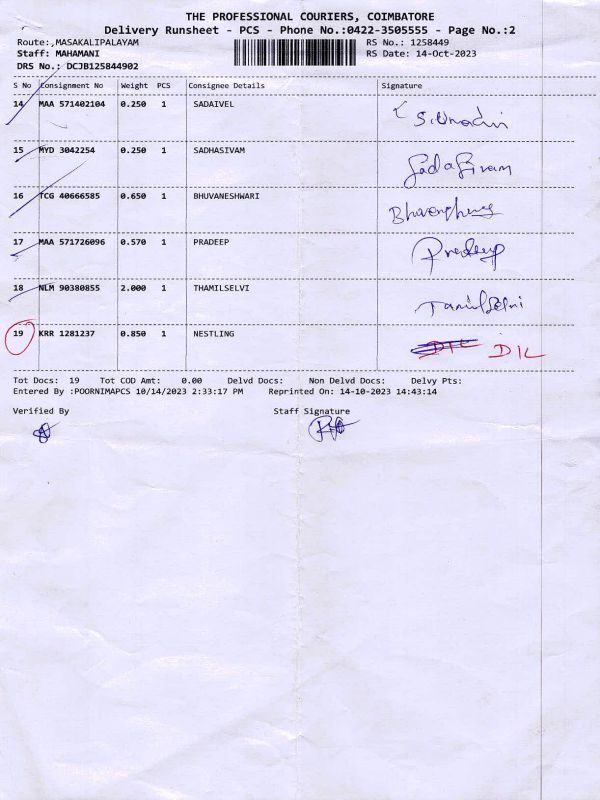 THE PROFESSIONAL COURIERS, COIMBATORE
Delivery Runsheet - PCS - Phone No.:0422-3505555 - Page No.:2
Route:,MASAKALIPALAYAM RS No.: 1258449
Staff: MAHAMANI RS Date: 14-Oct-2023
DRS No.: DCJB125844902
S No Consignment No Weight PCS Consignee Details Signature
14 MAA 571402104 0.250 1 SADAIVEL
15 MYD 3042254 0.250 1 SADHASIVAM SadaSivam
16 TCG 40666585 0.650 1 BHUVANESHWARI
17 MAA 571726096 0.570 1 PRADEEP Pradeep
18 NLM 90380855 2.000 1 THAMILSELVI TamilSelvi
19 KRR 1281237 0.850 1 NESTLING DIL DIL
Tot Docs: 19 Tot COD Amt: 0.00 Delvd Docs: Non Delvd Docs: Delvy Pts:
Entered By :POORNIMAPCS 10/14/2023 2:33:17 PM Reprinted On: 14-10-2023 14:43:14
Verified By Staff Signature